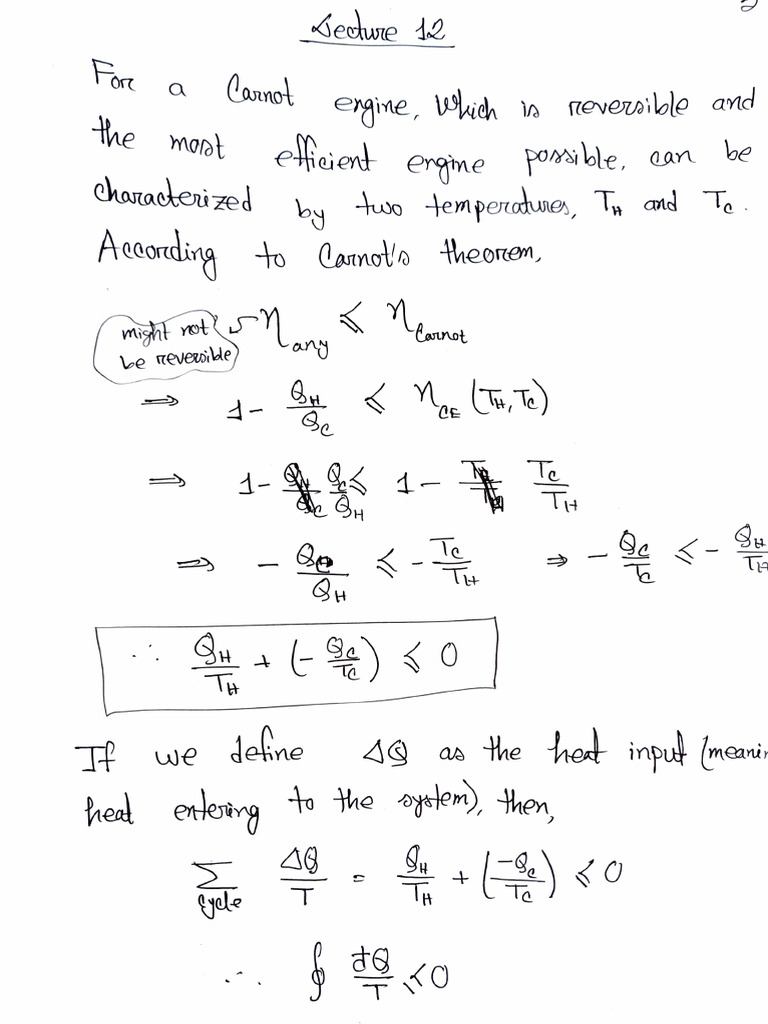 Lecture 12
For a Carnot engine, which is reversible and
the most efficient engine possible, can be
characterized by two temperatures, T_H and T_C.
According to Carnot's theorem,
might not be reversible η_any ⩽ η_Carnot
⇒ 1 - Q_H/Q_C ⩽ η_CE (T_H, T_C)
⇒ 1 - Q_C/Q_H ⩽ 1 - T_C/T_H
⇒ - Q_C/Q_H ⩽ - T_C/T_H ⇒ - Q_C/T_C ⩽ - Q_H/T_H
∴ Q_H/T_H + (- Q_C/T_C) ⩽ 0
If we define ΔQ as the heat input (meanin
heat entering to the system), then,
∑_cycle ΔQ/T = Q_H/T_H + (-Q_C/T_C) ⩽ 0
∴ ∮ đQ/T ⩽ 0